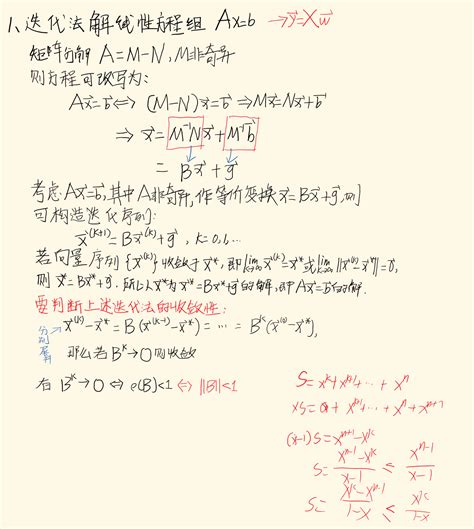 1、迭代法解线性方程组 Ax=b → y⃗=Xw⃗
矩阵分解 A=M-N, M非奇异
则方程可改写为:
Ax⃗=b⃗ ⇔ (M-N)x⃗=b⃗ ⇒ Mx⃗=Nx⃗+b⃗
⇒ x⃗=M⁻¹Nx⃗+M⁻¹b⃗
= Bx⃗+g⃗
考虑Ax⃗=b⃗,其中A非奇异,作等价变换x⃗=Bx⃗+g⃗,则
可构造迭代序列:
x⃗^(k+1)=Bx⃗^(k)+g⃗, k=0,1,…
若向量序列{x⃗^(k)}收敛于x⃗*,即lim_{k→∞}x⃗^(k)=x⃗*或lim_{k→∞}||x⃗^(k)-x⃗*||=0,
则x⃗*=Bx⃗*+g⃗.所以x⃗*为x⃗=Bx⃗+g⃗的解,即Ax⃗=b⃗的解.
要判断上述迭代法的收敛性:
x⃗^(k)-x⃗*=B(x⃗^(k-1)-x⃗*)=…=B^k(x⃗^(0)-x⃗*),
那么若B^k→0则收敛
有B^k→0 ⇔ ρ(B)<1 ⇔ ||B||<1
S=x^k+x^{k+1}+…+x^n
xS=0+x^{k+1}+…+x^n+x^{n+1}
(x-1)S=x^{n+1}-x^k